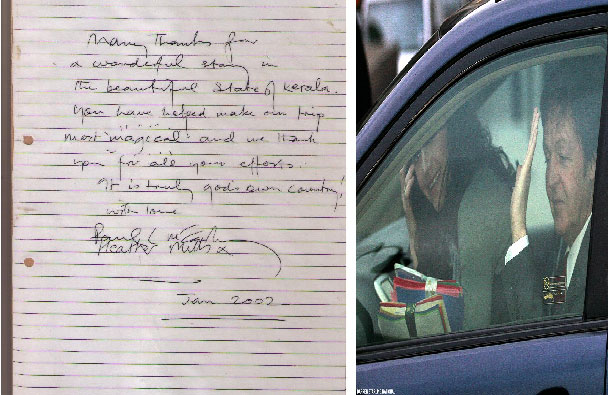 Many thanks for
a wonderful stay in
the beautiful state of Kerala.
You have helped make our trip
most 'magical' and we thank
you for all your efforts.
It is truly gods own country!
with love
Paul
Heather Mills x
Jan 2002